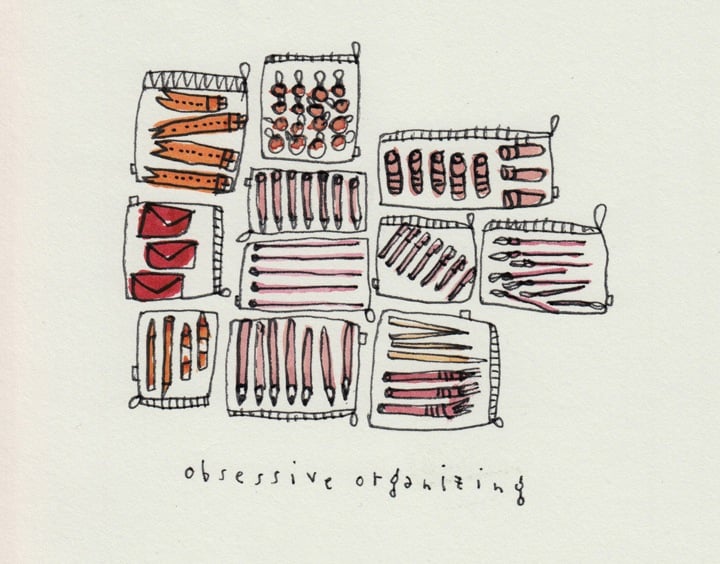 obsessive organizing